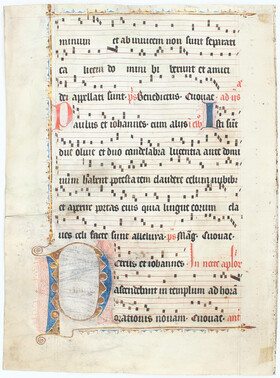 minimum et ad invicem non sunt separati
ca licem do mini bi berunt et amici
dei appellati sunt. ps Benedictus. Euouae. ad vs
Paulus et iohannes cum aliis Isti sunt
due olive et duo candelabra lucentia ante domi
num habent potestatem claudere celum nubibus
et aperire portas eius quia lingue eorum cla
ves celi facte sunt alleluya. ps Mag. Euouae.
Petrus et iohannes In nat apostolor
ascendebant in templum ad horam
orationis nonam. Euouae. ant